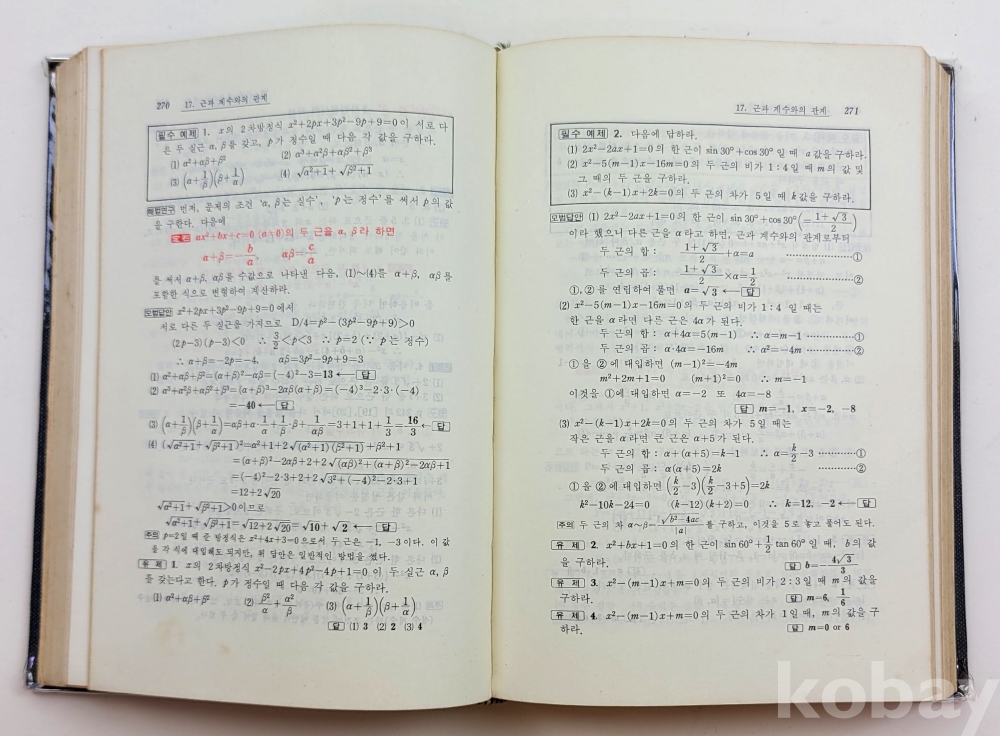 270 17. 근과 계수와의 관계
필수 예제 1. x의 2차방정식 x²+2px+3p²-9p+9=0이 서로 다
른 두 실근 α, β를 갖고, p가 정수일 때 다음 각 값을 구하라.
(1) α²+αβ+β² (2) α³+α²β+αβ²+β³
(3) (α+1/β)(β+1/α) (4) √(α²+1)+√(β²+1)
해법연구 먼저, 문제의 조건 'α, β는 실수', 'p는 정수'를 써서 p의 값
을 구한다. 다음에
정석 ax²+bx+c=0 (a≠0)의 두 근을 α, β라 하면
α+β=-b/a, αβ=c/a
를 써서 α+β, αβ를 수값으로 나타낸 다음, (1)~(4)를 α+β, αβ를
포함한 식으로 변형하여 계산하라.
모범답안 x²+2px+3p²-9p+9=0에서
서로 다른 두 실근을 가지므로 D/4=p²-(3p²-9p+9)>0
(2p-3)(p-3)<0 ∴ 3/2<p<3 ∴ p=2 (∵ p는 정수)
∴ α+β=-2p=-4, αβ=3p²-9p+9=3
(1) α²+αβ+β²=(α+β)²-αβ=(-4)²-3=13 ← 답
(2) α³+α²β+αβ²+β³=(α+β)³-2αβ(α+β)=(-4)³-2·3·(-4)
=-40 ← 답
(3) (α+1/β)(β+1/α)=αβ+α·1/α+1/β·β+1/αβ=3+1+1+1/3=16/3 ← 답
(4) (√(α²+1)+√(β²+1))²=α²+1+2√((α²+1)(β²+1))+β²+1
=(α+β)²-2αβ+2+2√((αβ)²+(α+β)²-2αβ+1)
=(-4)²-2·3+2+2√(3²+(-4)²-2·3+1)
=12+2√20
√(α²+1)+√(β²+1)>0이므로
√(α²+1)+√(β²+1)=√(12+2√20)=√10+√2 ← 답
주의 p=2일 때 준 방정식은 x²+4x+3=0으로서 두 근은 -1, -3이다. 이 값
을 각 식에 대입해도 되지만, 위 답안은 일반적인 방법을 썼다.
유제 1. x의 2차방정식 x²-2px+4p²-4p+1=0이 두 실근 α, β
를 갖는다고 한다. p가 정수일 때 다음 각 값을 구하라.
(1) α²+αβ+β² (2) β²/α+α²/β (3) (α+1/β)(β+1/α)
답 (1) 3 (2) 2 (3) 4
17. 근과 계수와의 관계 271
필수 예제 2. 다음에 답하라.
(1) 2x²-2ax+1=0의 한 근이 sin 30°+cos 30°일 때 a값을 구하라.
(2) x²-5(m-1)x-16m=0의 두 근의 비가 1:4일 때 m의 값 및
그 때의 두 근을 구하라.
(3) x²-(k-1)x+2k=0의 두 근의 차가 5일 때 k값을 구하라.
모범답안 (1) 2x²-2ax+1=0의 한 근이 sin 30°+cos 30°(=(1+√3)/2)
이라 했으니 다른 근을 α라고 하면, 근과 계수와의 관계로부터
두 근의 합: (1+√3)/2+α=a ……………… ①
두 근의 곱: (1+√3)/2×α=1/2 ……………… ②
①, ②를 연립하여 풀면 a=√3 ← 답
(2) x²-5(m-1)x-16m=0의 두 근의 비가 1:4일 때는
한 근을 α라면 다른 근은 4α가 된다.
두 근의 합: α+4α=5(m-1) ∴ α=m-1 ……………… ①
두 근의 곱: α·4α=-16m ∴ α²=-4m ……………… ②
①을 ②에 대입하면 (m-1)²=-4m
m²+2m+1=0 (m+1)²=0 ∴ m=-1
이것을 ①에 대입하면 α=-2 또 4α=-8
답 m=-1, x=-2, -8
(3) x²-(k-1)x+2k=0의 두 근의 차가 5일 때는
작은 근을 α라면 큰 근은 α+5가 된다.
두 근의 합: α+(α+5)=k-1 ∴ α=k/2-3 ……………… ①
두 근의 곱: α(α+5)=2k ……………… ②
①을 ②에 대입하면 (k/2-3)(k/2-3+5)=2k
k²-10k-24=0 (k-12)(k+2)=0 ∴ k=12, -2 ← 답
주의 두 근의 차 α~β=|√(b²-4ac)|/|a|를 구하고, 이것을 5로 놓고 풀어도 된다.
유제 2. x²+bx+1=0의 한 근이 sin 60°+1/2 tan 60°일 때, b의 값
을 구하라. 답 b=-4√3/3
유제 3. x²-(m-1)x+m=0의 두 근의 비가 2:3일 때 m의 값을
구하라. 답 m=6, 1/6
유제 4. x²-(m-1)x+m=0의 두 근의 차가 1일 때, m의 값을 구
하라. 답 m=0 or 6
kobay